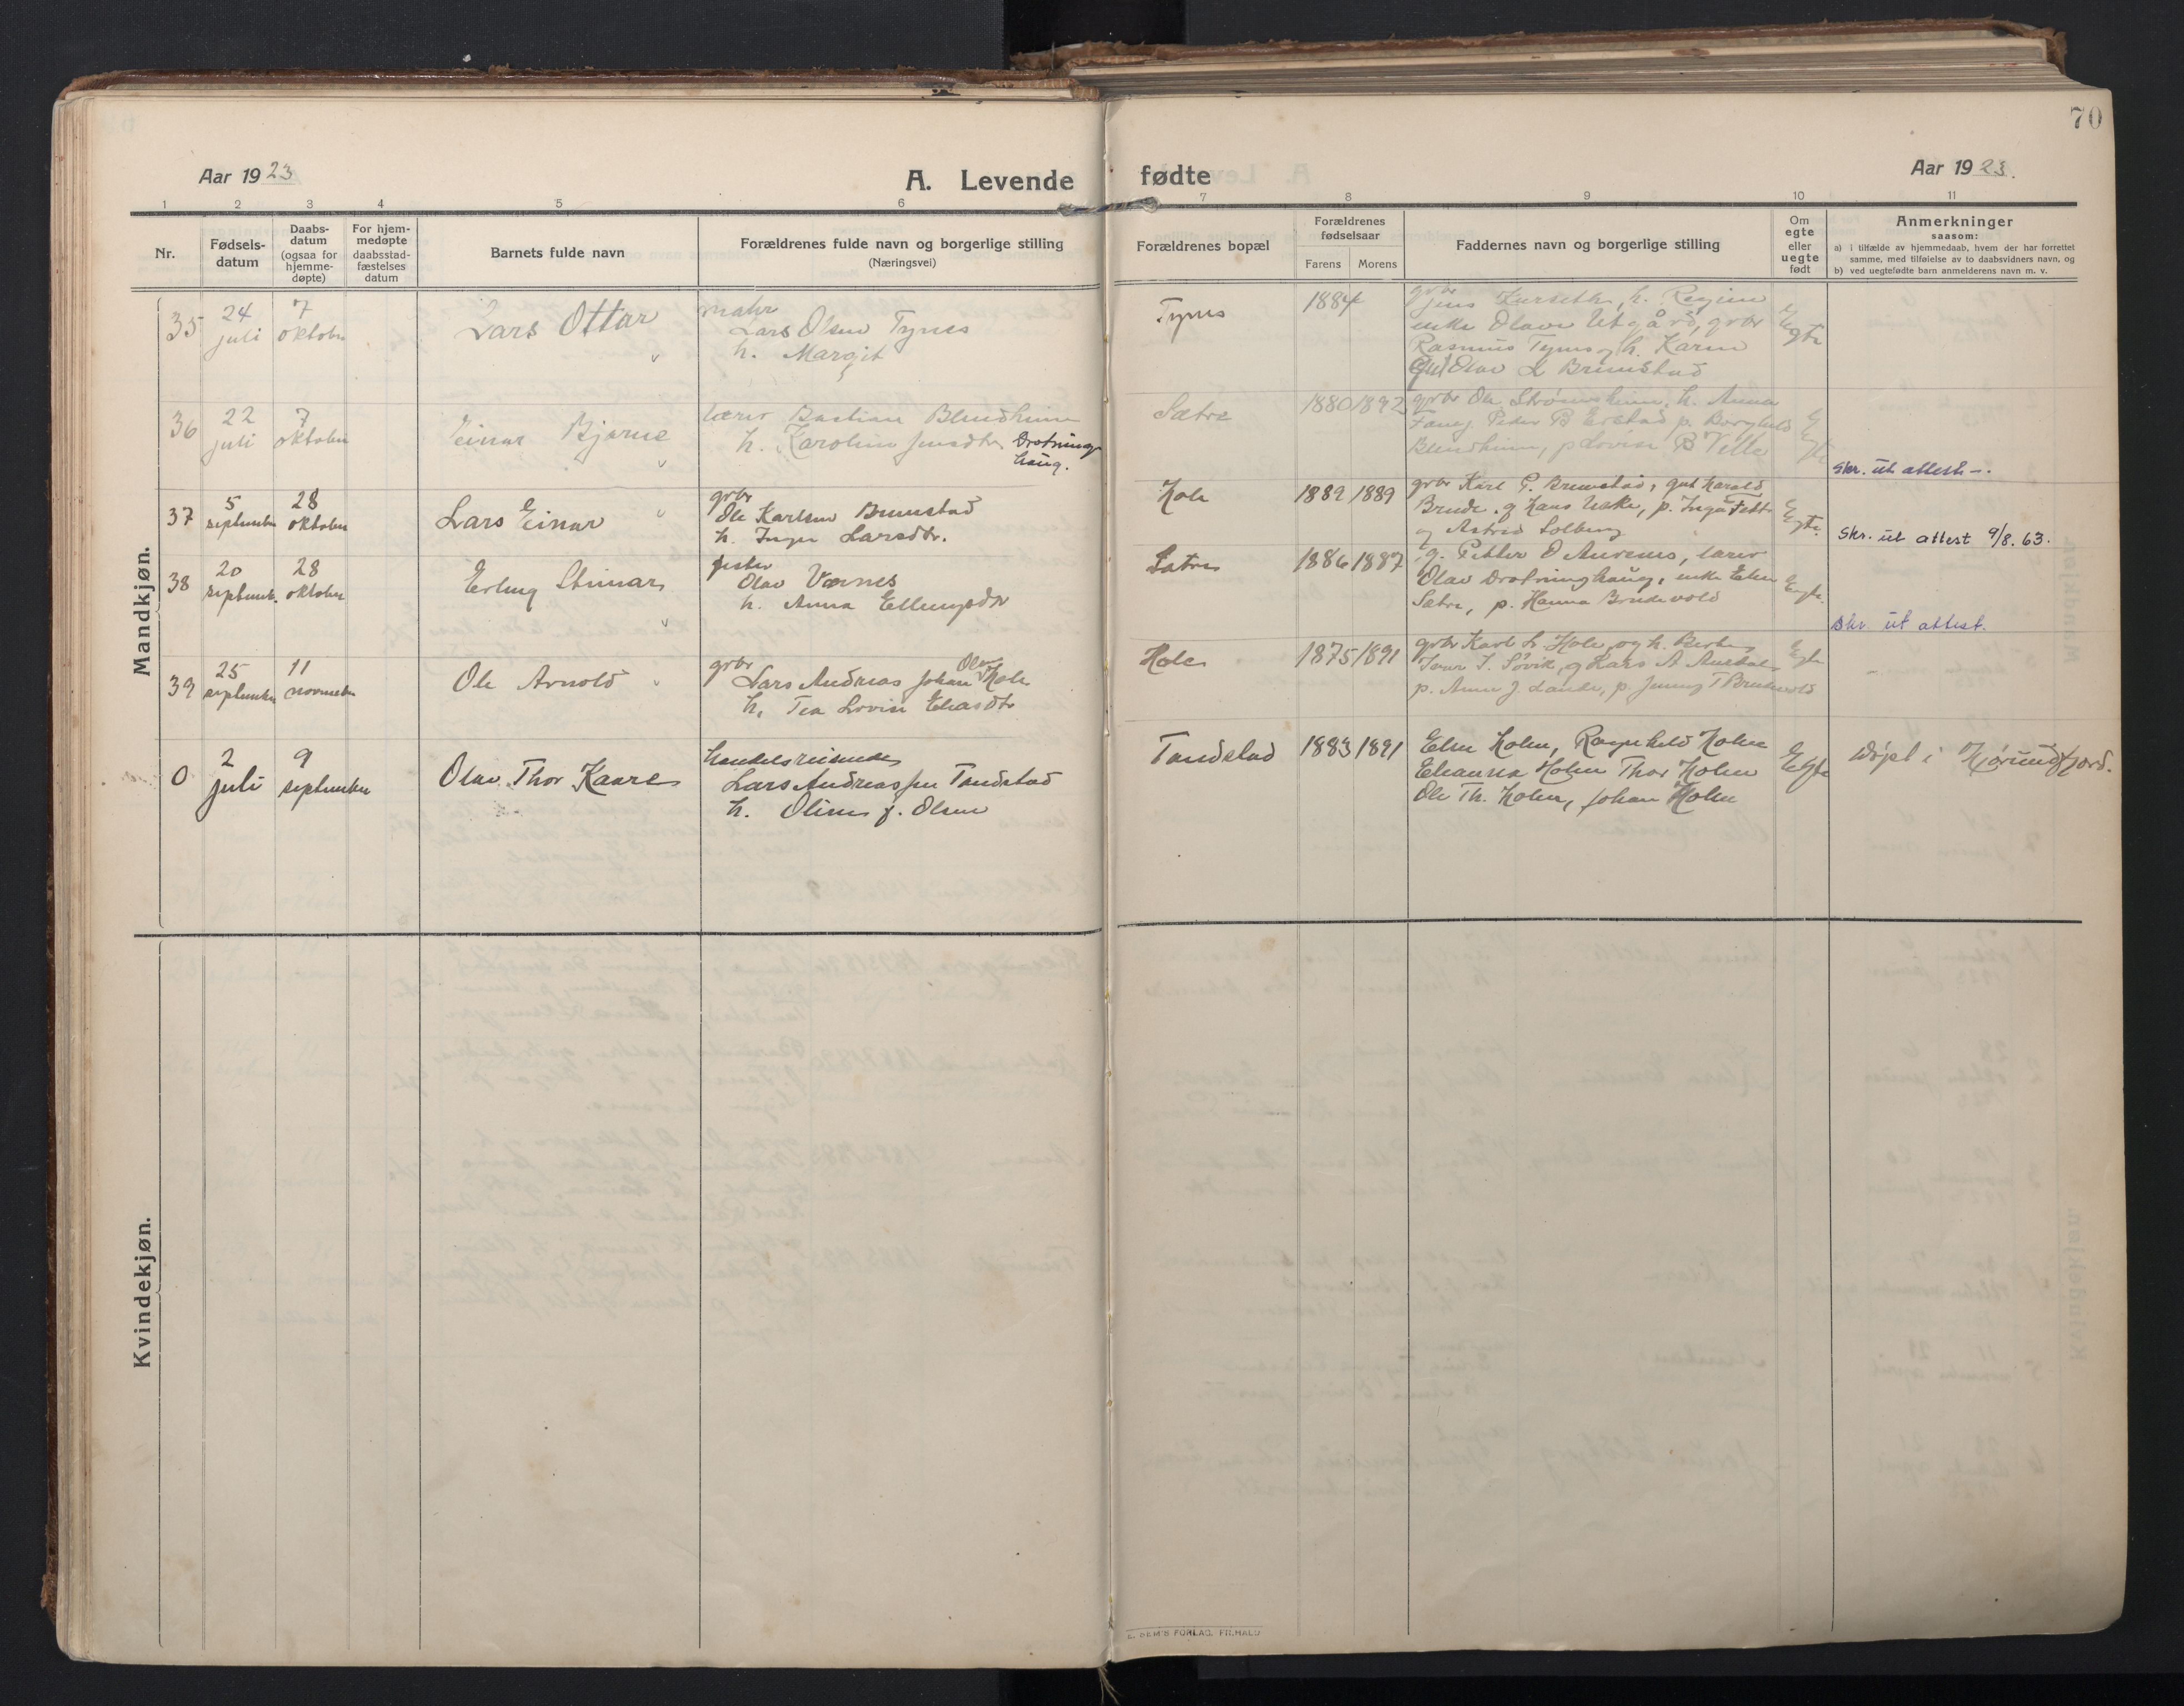 70
Aar 1923
A. Levende
fødte
Aar 1923.
1 2 3 4 5 6 7 8 9 10 11
Nr.
Fødsels-
datum
Daabs-
datum
(ogsaa for
hjemme-
døpte)
For hjem-
medøpte
daabsstad-
fæstelses
datum
Barnets fulde navn
Forældrenes fulde navn og borgerlige stilling
(Næringsvei)
Forældrenes bopæl
Forældrenes
fødselsaar
Farens Morens
Faddernes navn og borgerlige stilling
Om
egte
eller
uegte
født
Anmerkninger
saasom:
a) i tilfælde av hjemmedaab, hvem der har forrettet
samme, med tilføielse av to daabsvidners navn, og
b) ved uegtefødte barn anmelderens navn m. v.
Mandkjøn.
35
24
juli
7
oktober
Lars Ottar
Lars Olsen Tynes
h. Margit
Tynes
1884
gbr Jens h. Regine
enke Olave Utgård, gbr
Rasmus Tynes og h. Karen
Olav L Brunstad
Egte
36
22
juli
7
oktober
Einar Bjarne
lærer Bastian Blindheim
h. Karoline Jensdtr Drotning
haug.
Sætre
1880 1892
gbr Ole Strømsheim, h. Anna
Peder B Erstad p. Borghild
Blindheim, p Lovise B Velle
Egte
Skr. ut attest -.
37
5
september
28
oktober
Lars Einar
gbr
Ole Karlsen Brunstad
h. Inga Larsdtr.
Hole
1882 1889
gbr Karl P. Brunstad, gut Harald
Brude. g Hans p. Inga
og Astrid Solberg
Egte.
Skr. ut attest 9/8. 63.
38
20
septemb.
28
oktober
Erling Steinar
Olav Værnes
h. Anna Ellingsdtr
Sætre
1886 1887
g. Petter O Aurenes, lærer
Olav Drotninghaug, enke Elen
Sætre, p. Hanna Brudevold
Egte.
Skr. ut attest.
39
25
september
11
november
Ole Arnold
gbr
Lars Andreas Johan Olsen Hole
h. Tea Lovise Eliasdtr
Hole
1875 1891
gbr Karl L. Hole, og h. Berte
Ivar I. Søvik, g Lars A
p. Anna J Lande, p. Jenny T Brudevold
Egte
0
2
juli
9
september
Olav Thor Kaare
Handelsreisende
Lars Andreassen Tandstad
h. Oline f. Olsen
Tandstad
1883 1891
Else Holen, Ragnhild Holen
Elianna Holen Thor Holen
Ole Th. Holen, Johan Holen
Egte
Døpt i Hjørundfjord.
Kvindekjøn.
E. SEM'S FORLAG, FR.HALD